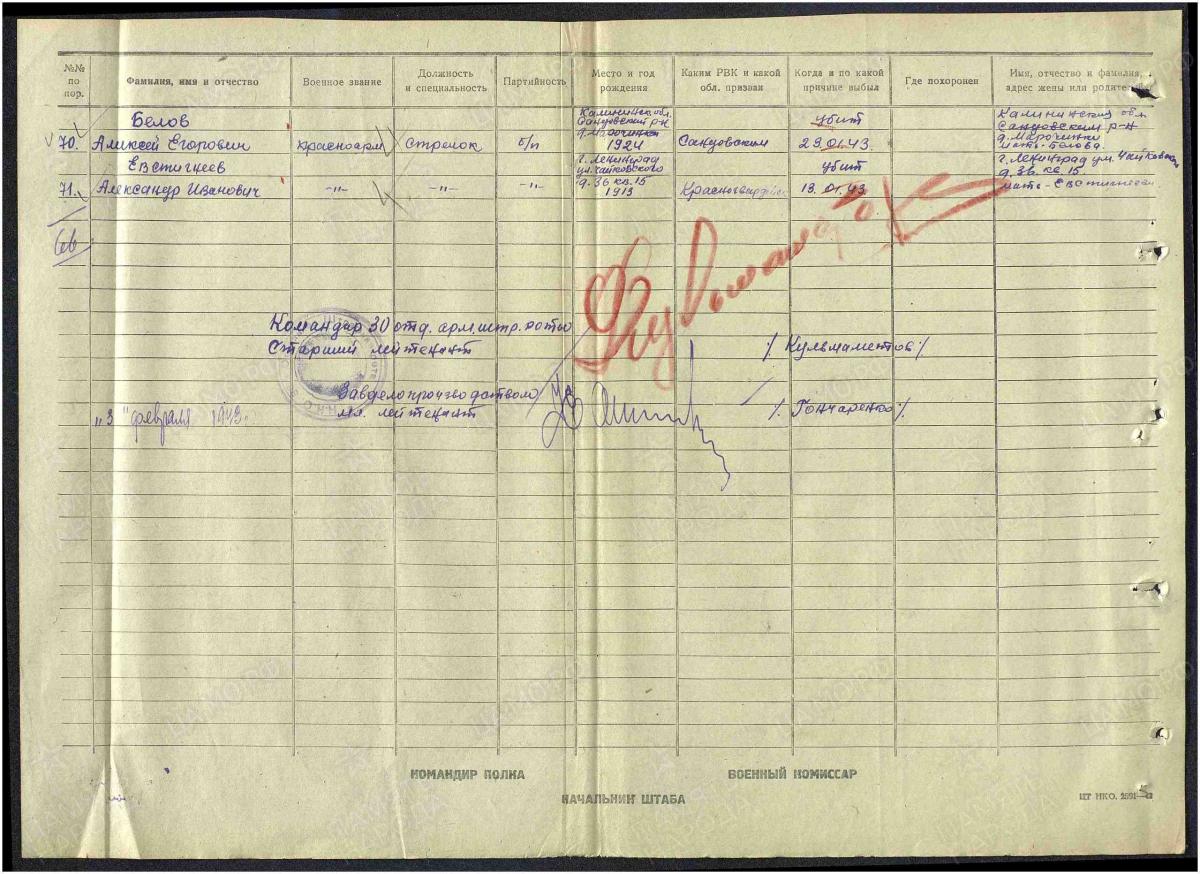 №№ по пор.
Фамилия, имя и отчество
Военное звание
Должность и специальность
Партийность
Место и год рождения
Каким РВК и какой обл. призван
Когда и по какой причине выбыл
Где похоронен
Имя, отчество и фамилия, адрес жены или родителей
70. Белов
Алексей Егорович
красноарм
Стрелок
б/п
Калининск. обл.
Сандовский р-н
д. Марочинки
1924
Сандовским
убит
29.01.43.
Калининская обл
Сандовским р-н
д. Марочинки
мать-Белова.
71. Евстигнеев
Александр Иванович
-"-
-"-
-"-
г. Ленинград
ул. Чайковского
д. 36 кв. 15
1913
Красногвардейск
убит
13.01.43
г. Ленинград ул. Чайковская
д. 36. кв. 15.
мать-Евстигнеева
Командир 30 отд. арм. штр. роты
Старший лейтенант /Кульмаметов/
Завделопроизводством
мл. лейтенант /Гончаренко/
„3" февраля 1943.
КОМАНДИР ПОЛКА
ВОЕННЫЙ КОМИССАР
НАЧАЛЬНИК ШТАБА
ЦТ НКО.